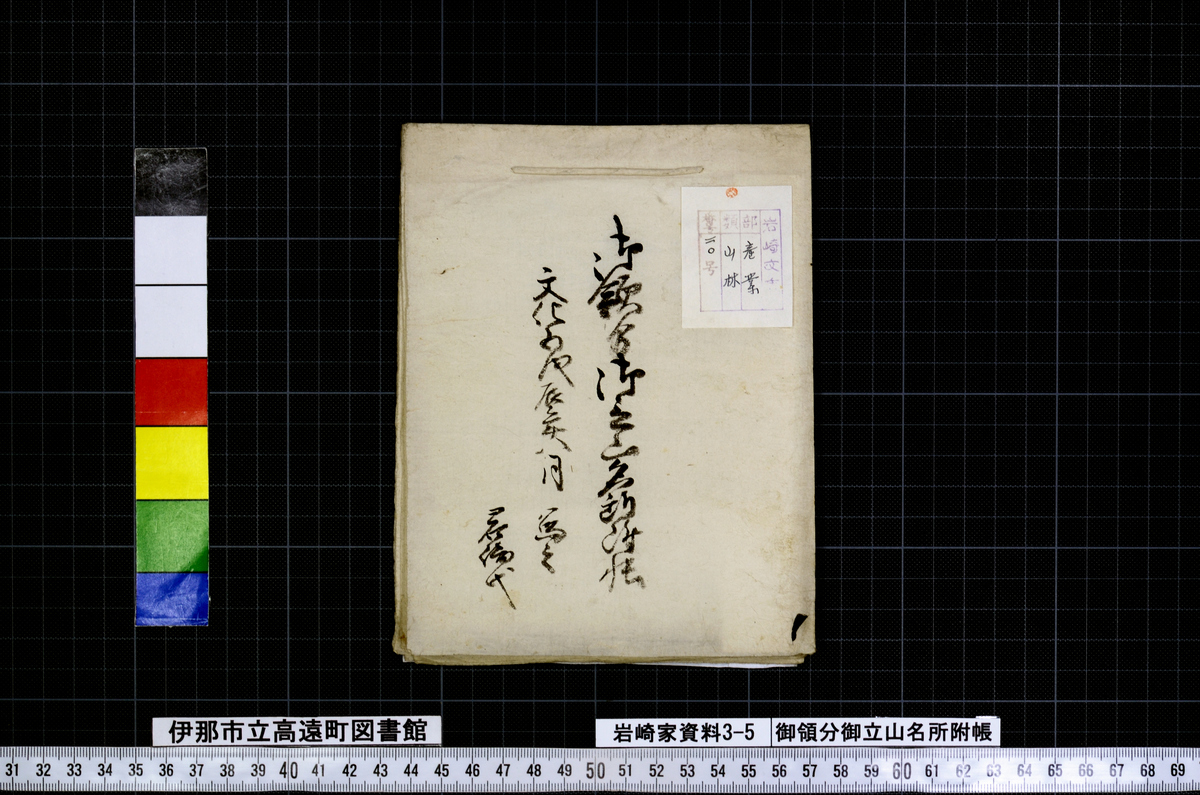 岩崎文
部 産業
類 山林
号
御領分御立山名所附帳
文化五戊辰年八月 写之
岩崎氏
伊那市立高遠町図書館
岩崎家資料3-5 御領分御立山名所附帳
31 32 33 34 35 36 37 38 39 40 41 42 43 44 45 46 47 48 49 50 51 52 53 54 55 56 57 58 59 60 61 62 63 64 65 66 67 68 69